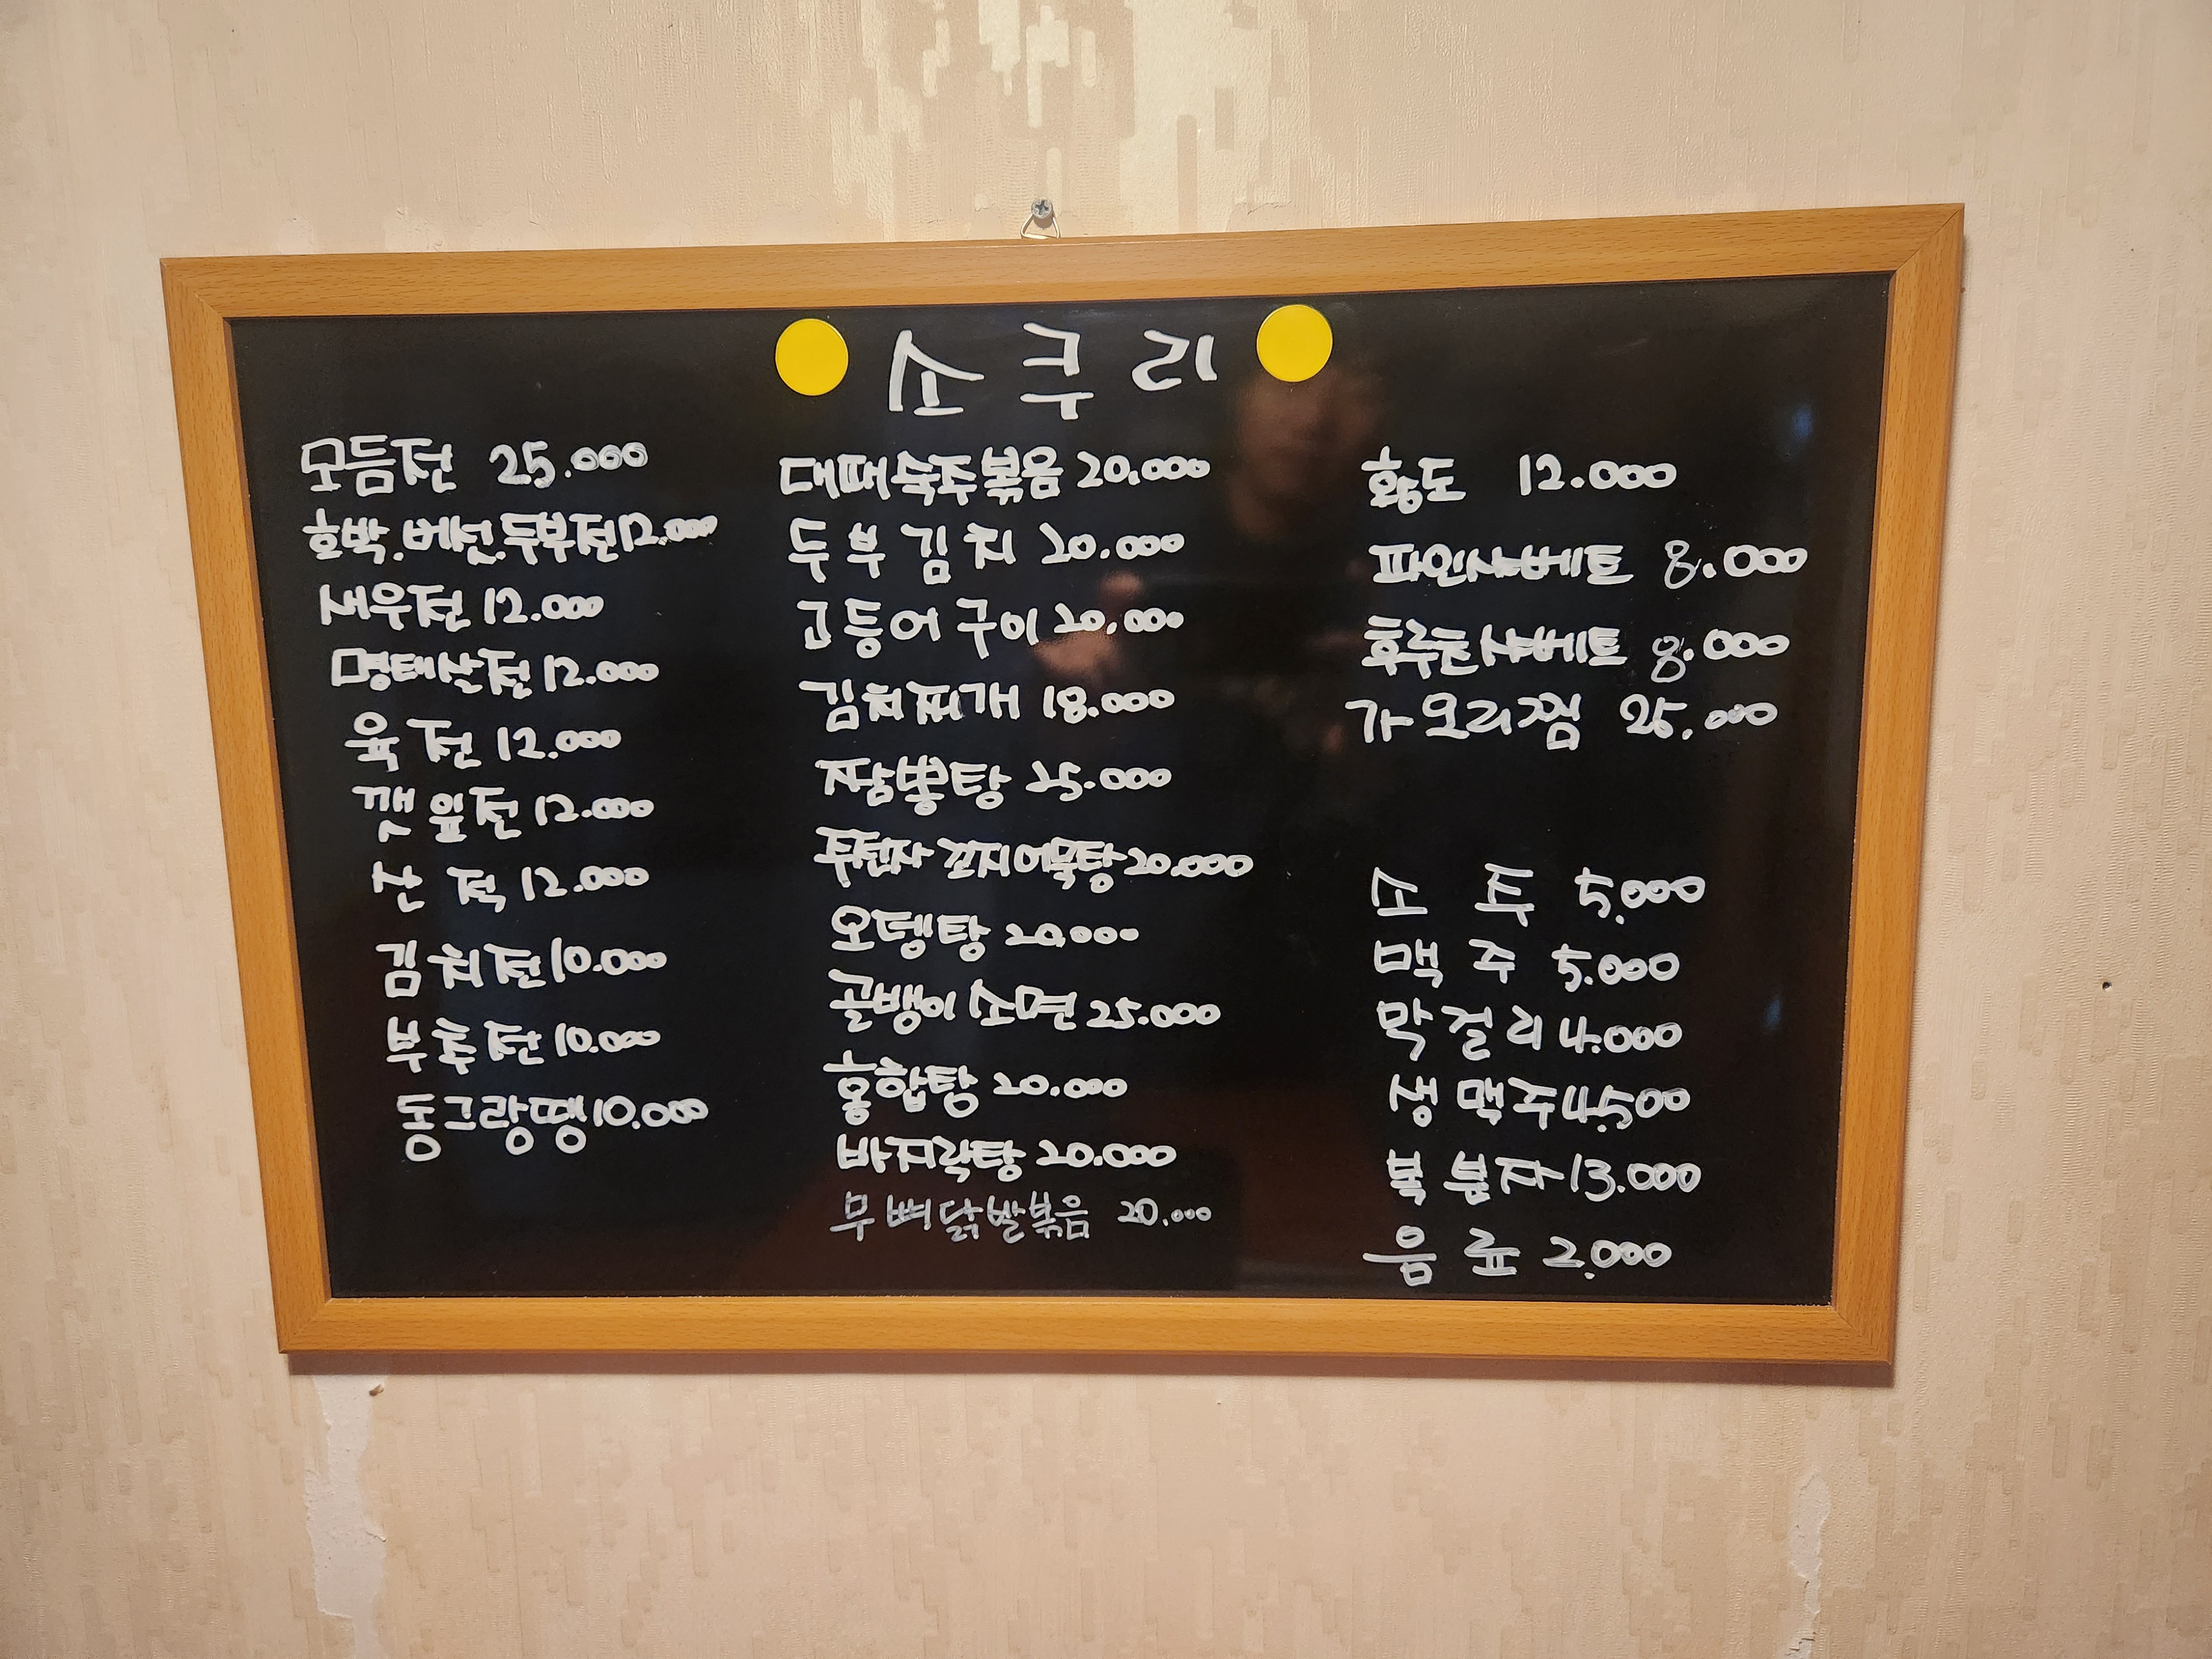 소쿠리
모듬전 25.000
호박.버섯.두부전 12.000
새우전 12.000
명태살전 12.000
육전 12.000
깻잎전 12.000
산적 12.000
김치전 10.000
부추전 10.000
동그랑땡 10.000
대패숙주볶음 20.000
두부김치 20.000
고등어구이 20.000
김치찌개 18.000
짬뽕탕 25.000
주전자 꼬지어묵탕 20.000
오뎅탕 20.000
골뱅이소면 25.000
홍합탕 20.000
바지락탕 20.000
무뼈닭발볶음 20.000
황도 12.000
파인샤베트 8.000
후루츠샤베트 8.000
가오리찜 25.000
소주 5.000
맥주 5.000
막걸리 4.000
생맥주 4.500
복분자 13.000
음료 2.000